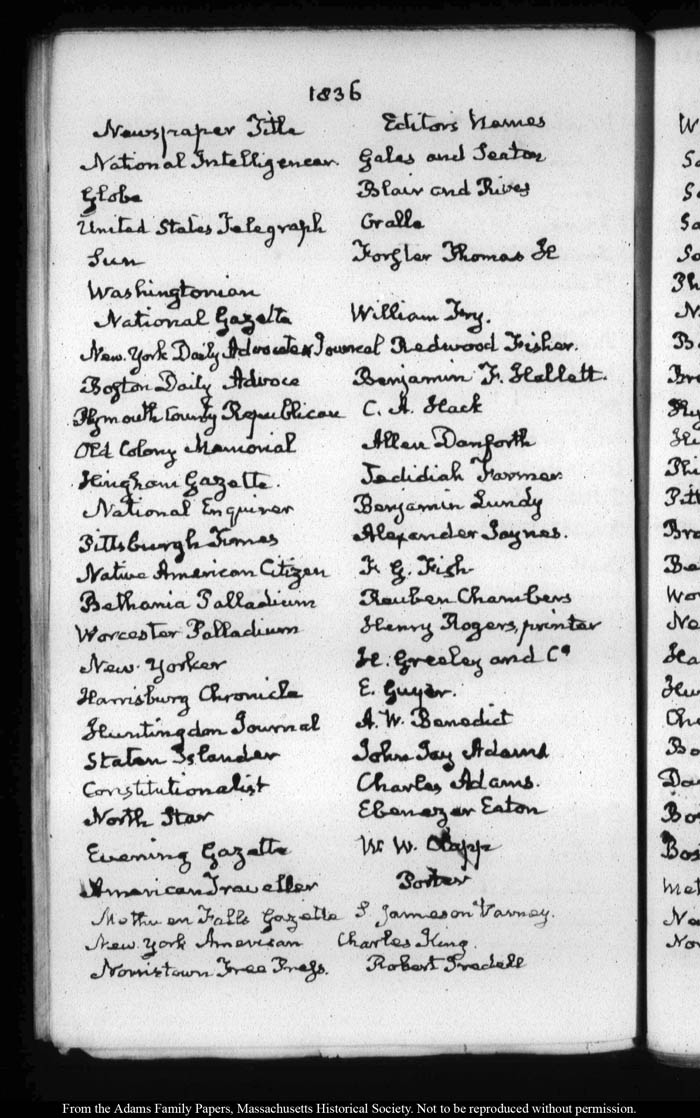 1836
Newspaper Title Editors Names
National Intelligencer. Gales and Seaton
Globe Blair and Rives
United States Telegraph Cralle
Sun Forster Thomas H
Washingtonian
National Gazette William Fry.
New. York Daily Advocate & Journal Redwood Fisher.
Boston Daily Advoce Benjamin F. Hallett.
Plymouth County Republican C. A. Hack
Old Colony Memorial Allen Danforth
Hingham Gazette. Jedidiah Farmer
National Enquirer Benjamin Lundy
Pittsburgh Times Alexander Jaynes.
Native American Citizen F. G. Fish
Bethania Palladium Reuben Chambers
Worcester Palladium Henry Rogers, printer
New. Yorker H. Greeley and Co
Harrisburg Chronicle E. Guyer.
Huntingdon Journal A. W. Benedict
Staten Islander John Jay Adams
Constitutionalist Charles Adams.
North Star Ebenezer Eaton
Evening Gazette W. W. Clapp
American Traveller Porter
Methuen Falls Gazette S. Jameson Varney.
New. York American Charles King.
Norristown Free Press. Robert Iredell
W
Sa
S
Sa
Sa
Ph
N
B
Bro
Hi
Phi
Pitt
Bro
Be
Wor
Ne
Ha
Hu
Che
Bo
Da
Bos
Bos
Met
Ne
Nor
From the Adams Family Papers, Massachusetts Historical Society. Not to be reproduced without permission.